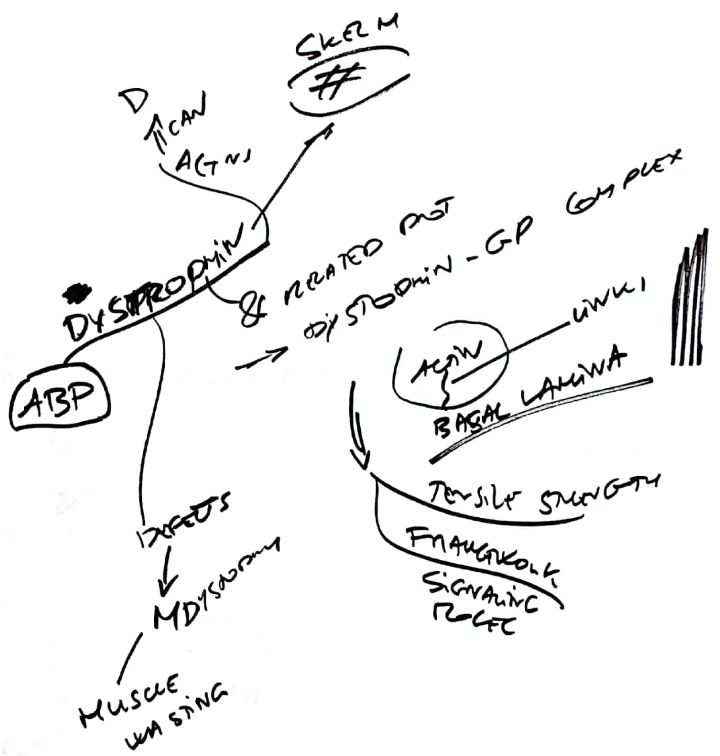 SKEL M
#
D
CAN
ACTNS
DYSTROPHIN
& RELATED PROT
→ DYSTOPHIN - GP COMPLEX
ABP
ACTIN
LINKS
BASAL LAMINA
TENSILE STRENGTH
FRAMEWORK
SIGNALING
DEFECTS
MDYSTROPHY
MUSCLE
WASTING